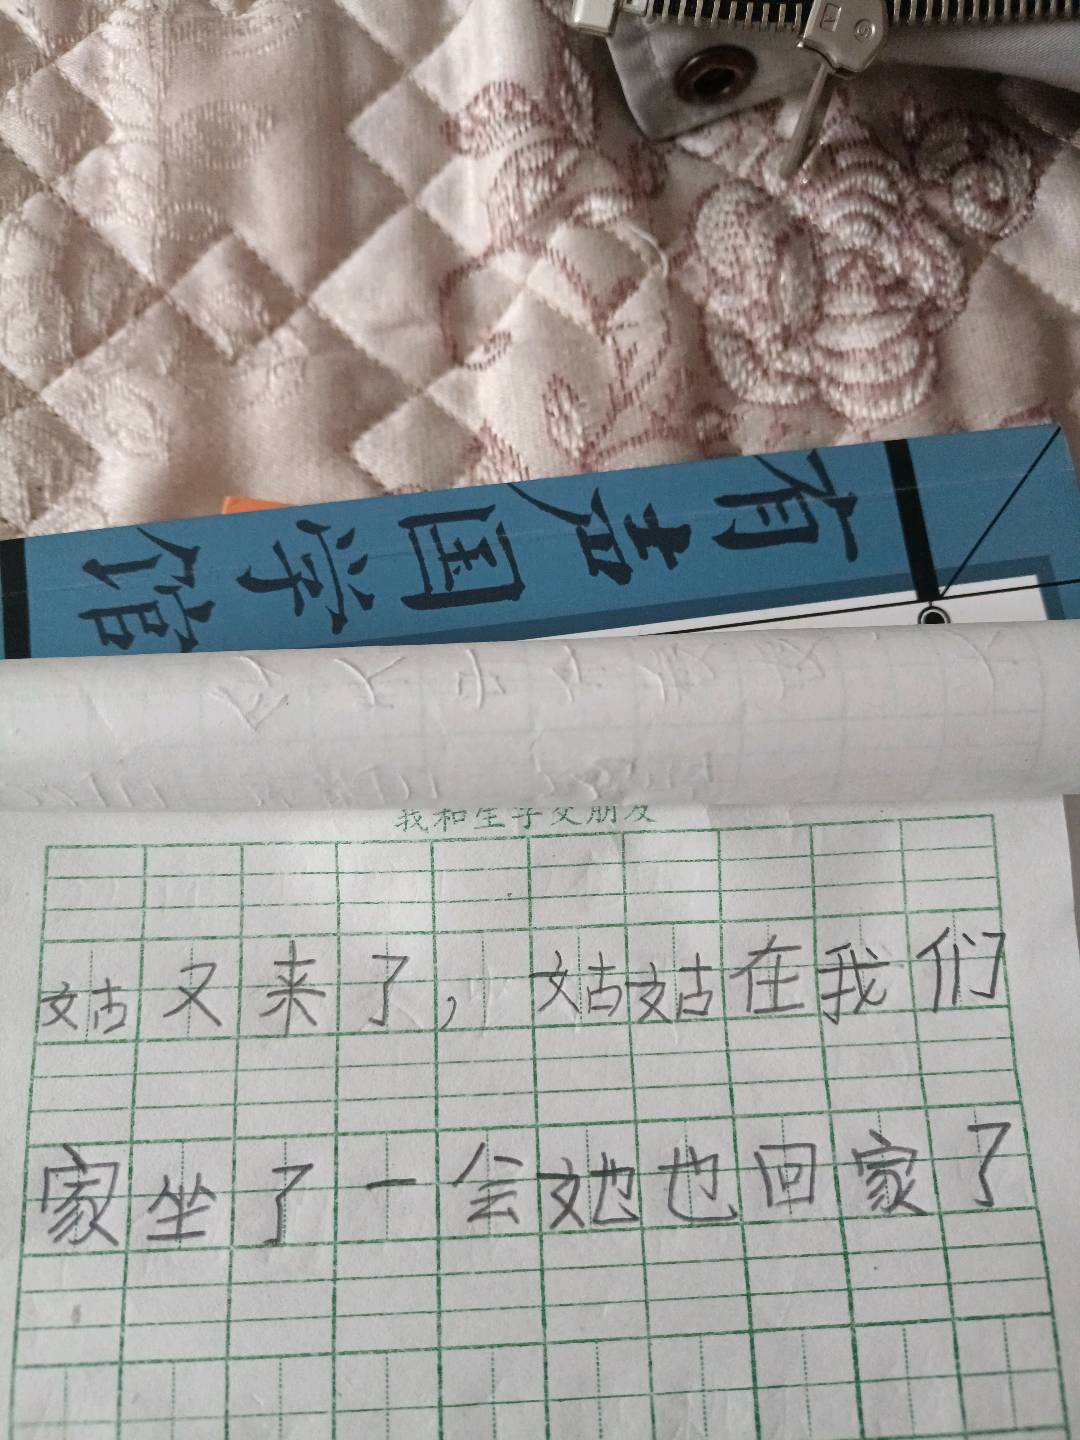 有声国学馆
我和生字交朋友
姑又来了，姑姑在我们
家坐了一会她也回家了